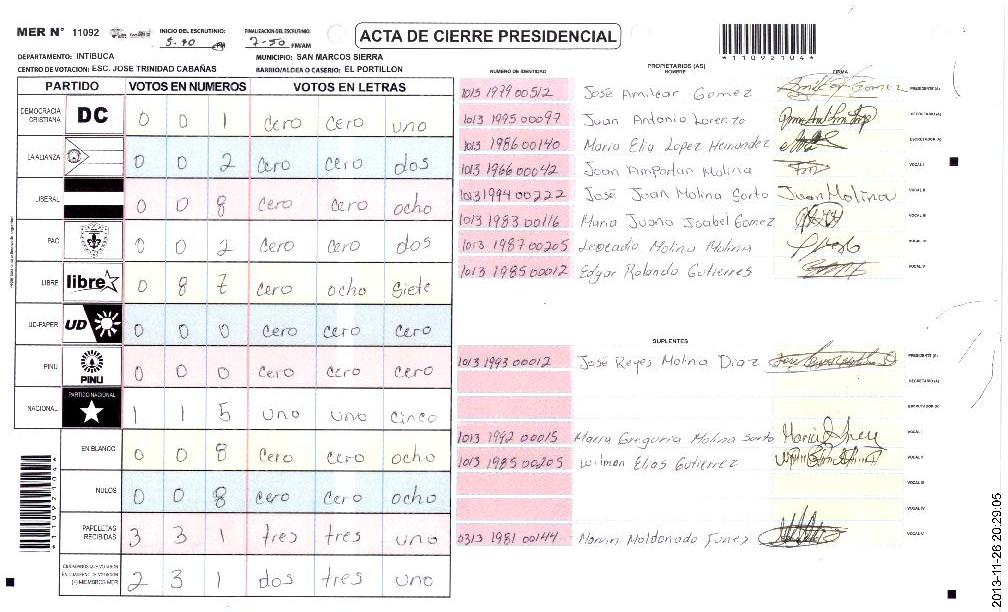 MER N° 11092
INICIO DEL ESCRUTINIO: 5:40 PM
FINALIZACION DEL ESCRUTINIO: 7-50 PM/AM
ACTA DE CIERRE PRESIDENCIAL
*11092104*
DEPARTAMENTO: INTIBUCA
MUNICIPIO: SAN MARCOS SIERRA
CENTRO DE VOTACION: ESC. JOSE TRINIDAD CABAÑAS
BARRIO/ALDEA O CASERIO: EL PORTILLON
PARTIDO VOTOS EN NUMEROS VOTOS EN LETRAS
DEMOCRACIA CRISTIANA DC 0 0 1 cero cero uno
LA ALIANZA 0 0 2 cero cero dos
LIBERAL 0 0 8 cero cero ocho
PAC 0 0 2 cero cero dos
LIBRE libre 0 8 7 cero ocho siete
UD-FAPER UD 0 0 0 cero cero cero
PINU PINU 0 0 0 cero cero cero
NACIONAL PARTIDO NACIONAL 1 1 5 uno uno cinco
EN BLANCO 0 0 8 cero cero ocho
NULOS 0 0 8 cero cero ocho
PAPELETAS RECIBIDAS 3 3 1 tres tres uno
CIUDADANOS QUE VOTARON EN CUADERNO DE VOTACION (+) MIEMBROS MER 2 3 1 dos tres uno
*11092104*
PROPIETARIOS (AS)
NUMERO DE IDENTIDAD NOMBRE FIRMA
1013 1979 00512 José Amilcar Gomez PRESIDENTE (A)
1013 1995 00097 Juan Antonio Lorenzo SECRETARIO (A)
1013 1986 00140 Maria Elia Lopez Hernandez ESCRUTADOR (A)
1013 1966 00042 Juan Molina VOCAL I
1013 1994 00222 José Juan Molina Sorto Juan Molina VOCAL II
1013 1983 00116 Maria Juana Isabel Gomez VOCAL III
1013 1987 00205 Leocadio Molina Molina VOCAL IV
1013 1985 00012 Edgar Rolando Gutierres VOCAL V
SUPLENTES
1013 1993 00012 José Reyes Molina Diaz PRESIDENTE (A)
SECRETARIO (A)
ESCRUTADOR (A)
1013 1992 00015 Maria Gregoria Molina Sorto VOCAL I
1013 1985 00205 Wilman Elias Gutierrez VOCAL II
VOCAL III
VOCAL IV
0313 1981 00144 Marvin Maldonado Funes VOCAL V
2013-11-26 20:29:05